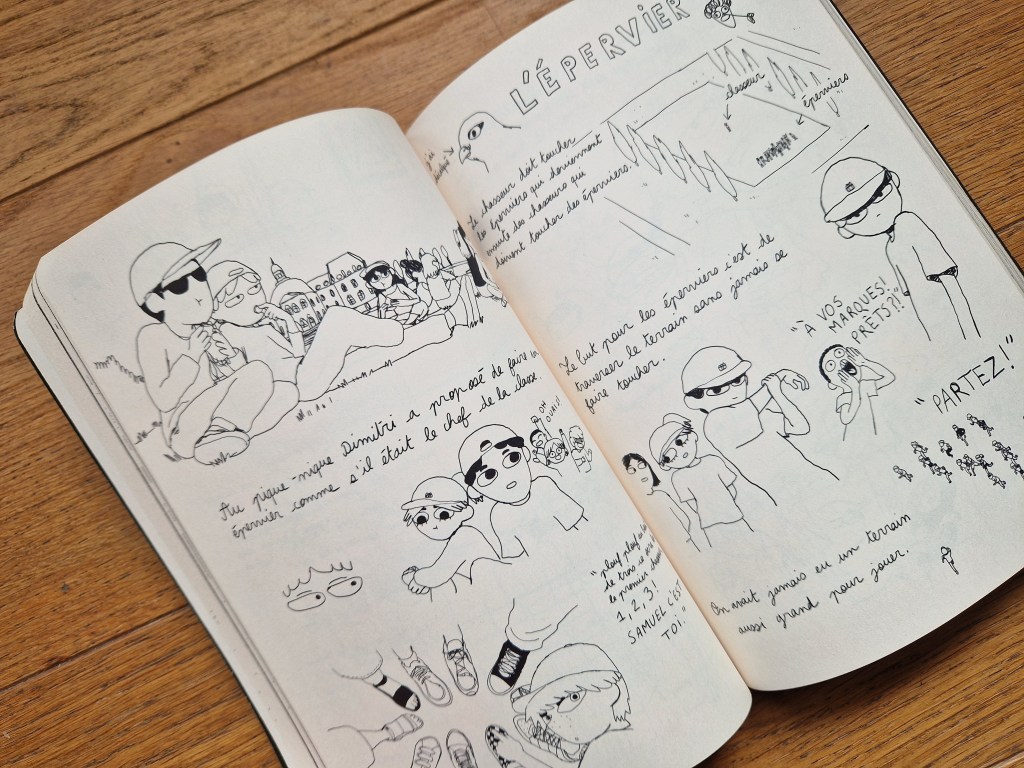 Au pique-nique Dimitri a proposé de faire un
épervier comme s'il était le chef de la classe.
OH
OUAIS!
"plouf plouf
1, 2, 3.
SAMUEL C'EST
TOI."
L'ÉPERVIER
chasseur
éperviers
Le chasseur doit toucher
les éperviers qui deviennent
ensuite des chasseurs qui
doivent toucher des éperviers.
Le but pour les éperviers c'est de
traverser le terrain sans jamais se
faire toucher.
"À VOS
MARQUES!
PRÊTS?!"
"PARTEZ!"
On avait jamais eu un terrain
aussi grand pour jouer.